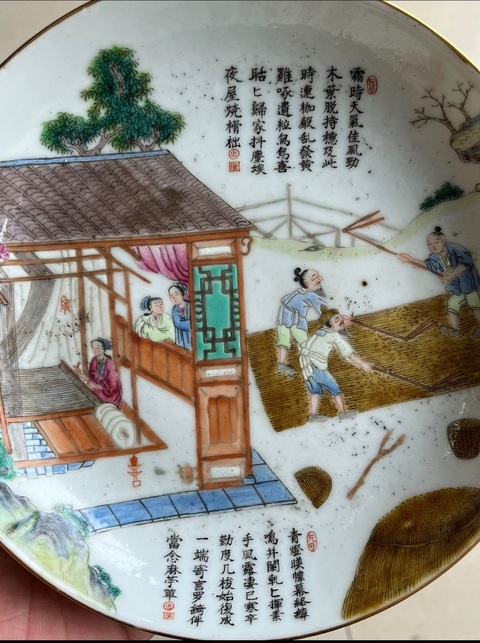 霜時天氣佳風勁
木葉脫持穗及此
時連枷聲乱發黃
雞啄遺粒烏鳥喜
聒匕歸家抖塵埃
夜屋燒榾柮
青燈暎幃幕絡緯
鳴井闌軋匕揮素
手風露凄已寒辛
勤度几梭始復成
一端寄言罗綺伴
當念麻苧單